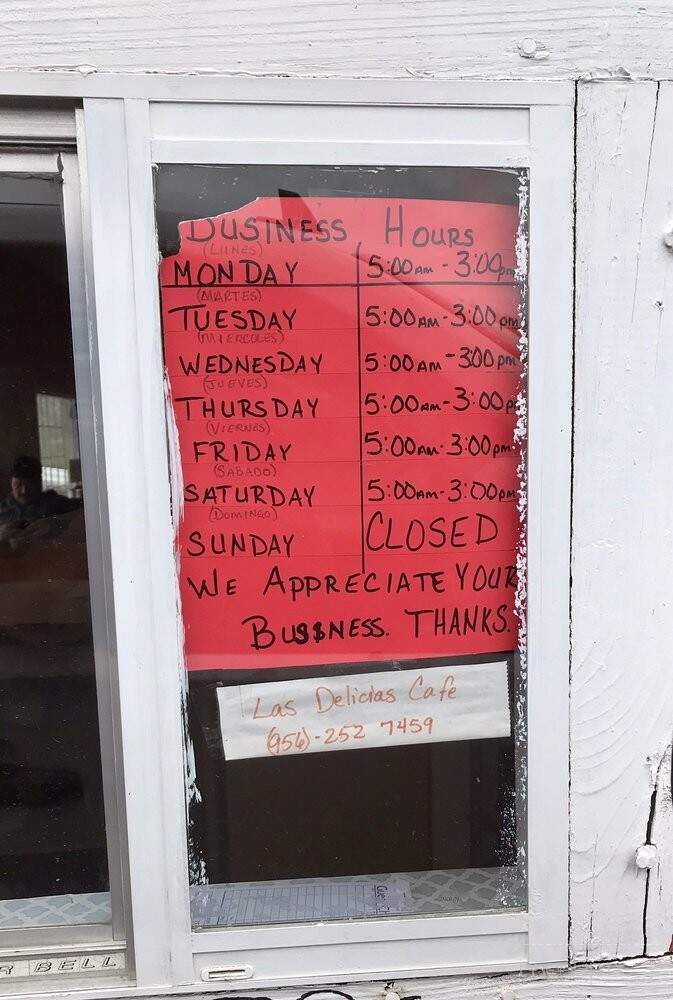 BUSINESS HOURS
(LUNES)
MONDAY 5:00AM - 3:00pm
(MARTES)
TUESDAY 5:00AM - 3:00pm
(MIERCOLES)
WEDNESDAY 5:00AM - 3:00pm
(JUEVES)
THURSDAY 5:00AM - 3:00p
(VIERNES)
FRIDAY 5:00AM - 3:00pm
(SABADO)
SATURDAY 5:00AM - 3:00pm
(DOMINGO)
SUNDAY CLOSED
WE APPRECIATE YOUR
BUSINESS. THANKS.
Las Delicias Cafe
(956)-252 7459
R BELL